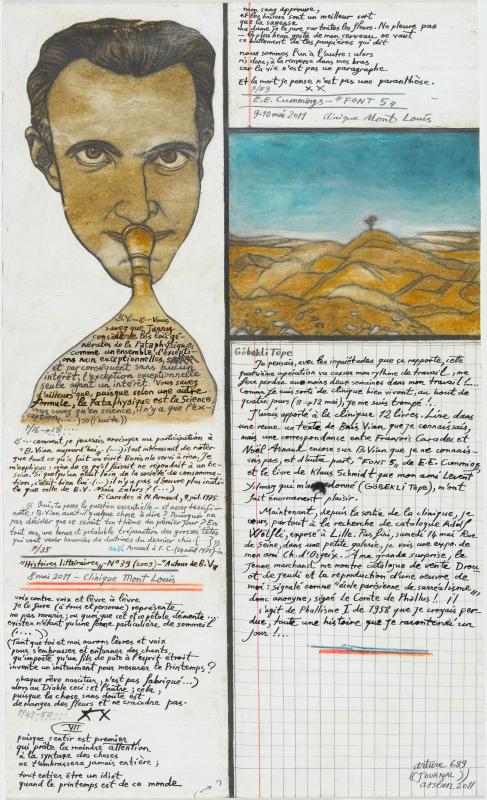 B.V.-8... Vous
savez que Jarry
considère les lois gé-
nérales de la Pataphysique
comme un ensemble d'excepti-
ons non exceptionnelles,
et par conséquent sans aucun
intérêt. L'exception exceptionnelle
seule ayant un intérêt. Vous savez
d'ailleurs que, puisque selon une autre
formule, la Pataphysique est la Science,
vous savez qu'en science, il n'y a que l'ex-
ception...
P/16-18...
(... comment je pourrais envisager ma participation à
"B. Vian aujourd'hui", (...) il est intéressant de noter
que tout ce qu'a fait Boris ne sert à rien. Je
m'explique: rien de ce qu'il faisait ne répondait à un be-
soin. Si quelqu'un était loin de la société de consomma-
tion, c'était bien lui. (...) il n'y a pas d'œuvre plus inuti-
le que celle de B.V. Mais zalors? (...)
F. Caradec à N. Arnaud, 9 juil. 1975.
P/35
Noël Arnaud à F.C.
"Histoires littéraires, - N° 39 (2009) -" Autour de B. Vian
8 mai 2011 - Clinique Mont Louis
voix contre voix et lèvre à lèvre
je le jure (à tous et personne) représente
ne pas mourir; ou quoi que cet et cela
existe n'étant qu'une forme particulière de sommeil
(....)
(Tant que toi et moi aurons lèvres et voix
pour s'embrasser et enfanter des chants
qu'importe qu'un fils de pute à l'esprit étroit
invente un instrument pour mesurer le Printemps?
chaque rêve nascitur, n'est pas fabriqué...)
alors au Diable ceci: et l'autre; cela,
puisque la chose sans doute est
de manger des fleurs et ne craindre pas.
P/49-50...
XX
VII
puisque sentir est premier
qui prête la moindre attention
à la syntaxe des choses
ne t'embrassera jamais entière;
tout entier être un idiot
quand le printemps est de ce monde
mon sang approuve,
et les baisers sont un meilleur sort
que la sagesse
ma dame je le jure sur toutes les fleurs. Ne pleure pas
- le plus beau geste de mon cerveau ne vaut
ce battement de tes paupières qui dit
nous sommes l'un à l'autre: alors
ris donc, à la renverse dans mes bras
car la vie n'est pas un paragraphe
Et la mort je pense n'est pas une paranthèse.
P/83
XX
E.E. Cummings - "FONT 5"
9-10 mai 2011 Clinique Mont Louis
Göbekli Tepe
Je pensais, avec les inquiétudes que ça rapporte, cette
quatrième opération va casser mon rythme de travail; me
fera perdre au moins deux semaines dans mon travail!...
Comme je suis sorti de clinique bien vivant, au bout de
quatre jours (8→12 mai), je ne me suis trompé!
J'avais apporté à la clinique 12 livres. Lire dans
une revue un texte de Boris Vian que je connaissais,
mais une correspondance entre François Caradec et
Noël Arnaud encore sur B. Vian que je ne connais-
sais pas, et d'autre part, "Font 5" de E.E. Cummings,
et le livre de Klaus Schmidt que mon ami Levent
Yılmaz qui m'a donné (GÖBEKLİ Tepe), m'ont
fait énormément plaisir.
Maintenant, depuis la sortie de la clinique, je
cours partout à la recherche de catalogue Adolf
Wölfli, exposé à Lille. Puis fini, samedi 14 mai Rue
de Seine dans une petite galerie, je vois une expo. de
mon ami Ch. d'Orgeix. Ana, grande surprise, le
jeune marchand, me montre catalogue de vente Drou
ot de jeudi et la reproduction d'une œuvre de
moi: signalé comme "école parisienne de surréalisme",
donc anonyme, signé le Comte de Phallus! Il
s'agit de Phallisme I de 1958 que je croyais per-
due, toute une histoire que je raconterai un
jour!...
arture 689
((JOURNAL))
arslan 2011